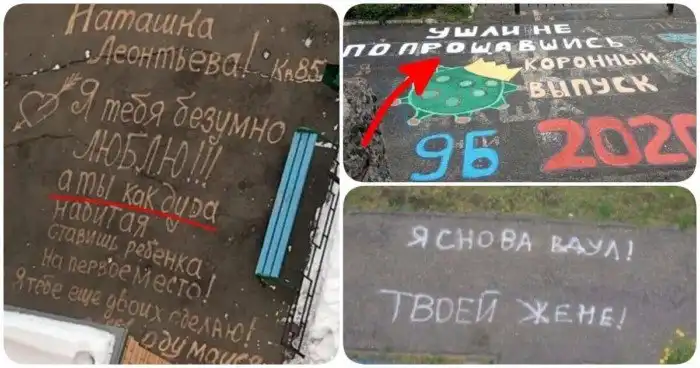 Наташка
Леонтьева! Кв85
Я тебя безумно
ЛЮБЛЮ!!!
а ты как дура
набитая
ставишь ребенка
на первое место!
Я тебе еще двоих сделаю!
одумайся
УШЛИ НЕ
ПОПРОЩАВШИСЬ
КОРОННЫЙ
ВЫПУСК
9Б 2020
Я СНОВА ВДУЛ!
ТВОЕЙ ЖЕНЕ!